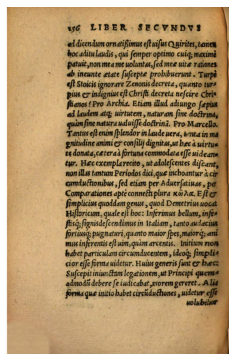 156 LIBER SECVNDVS
ad dicendum ornatißimus est uisus Quirites, tamen
hoc aditu laudis, qui semper optimo cuiq; maximè
patuit, non mea me voluntas, sed meæ uitæ rationes
ab ineunte ætate susceptæ prohibuerunt. Turpe
est Stoicis ignorare Zenonis decreta, quanto tur
pius & indignius est Christi decreta nescire Chri-
stianos? Pro Archia. Etiam illud adiungo sæpius
ad laudem atq; uirtutem, naturam sine doctrina,
quàm sine natura ualuisse doctrinā. Pro Marcello.
Tantus est enim splendor in laude uera, tanta in ma
gnitudine animi & consilij dignitas, ut hæc à uirtu-
te donata, cætera à fortuna commodata esse uideantur.
Hæc exempla recito, ut adolescentes discant,
non illas tantum Periodos dici, quæ inchoantur à cir
cumductionibus, sed etiam per Aduersatiuas, per
Comparationes aptè connecti plura κῶλα. Est &
simplicius quoddam genus, quod Demetrius uocat
Historicum, quale est hoc: Inferimus bellum, infe-
stisq; signis descendimus in Italiam, tanto audacius
fortiusq; pugnaturi, quanto maior spes, maiorq; ani
mus inferentis est uim, quàm arcentis. Initium non
habet particulam circumducentem, ideoq; simpli-
cior esse forma uidetur. Huius generis sunt & hæc:
Suscepit iniunctam legationem, ut Principi quem
admodū debere se iudicabat, morem gereret. Alia
forma quæ initio habet circūductiones, uidetur esse
uolubilior